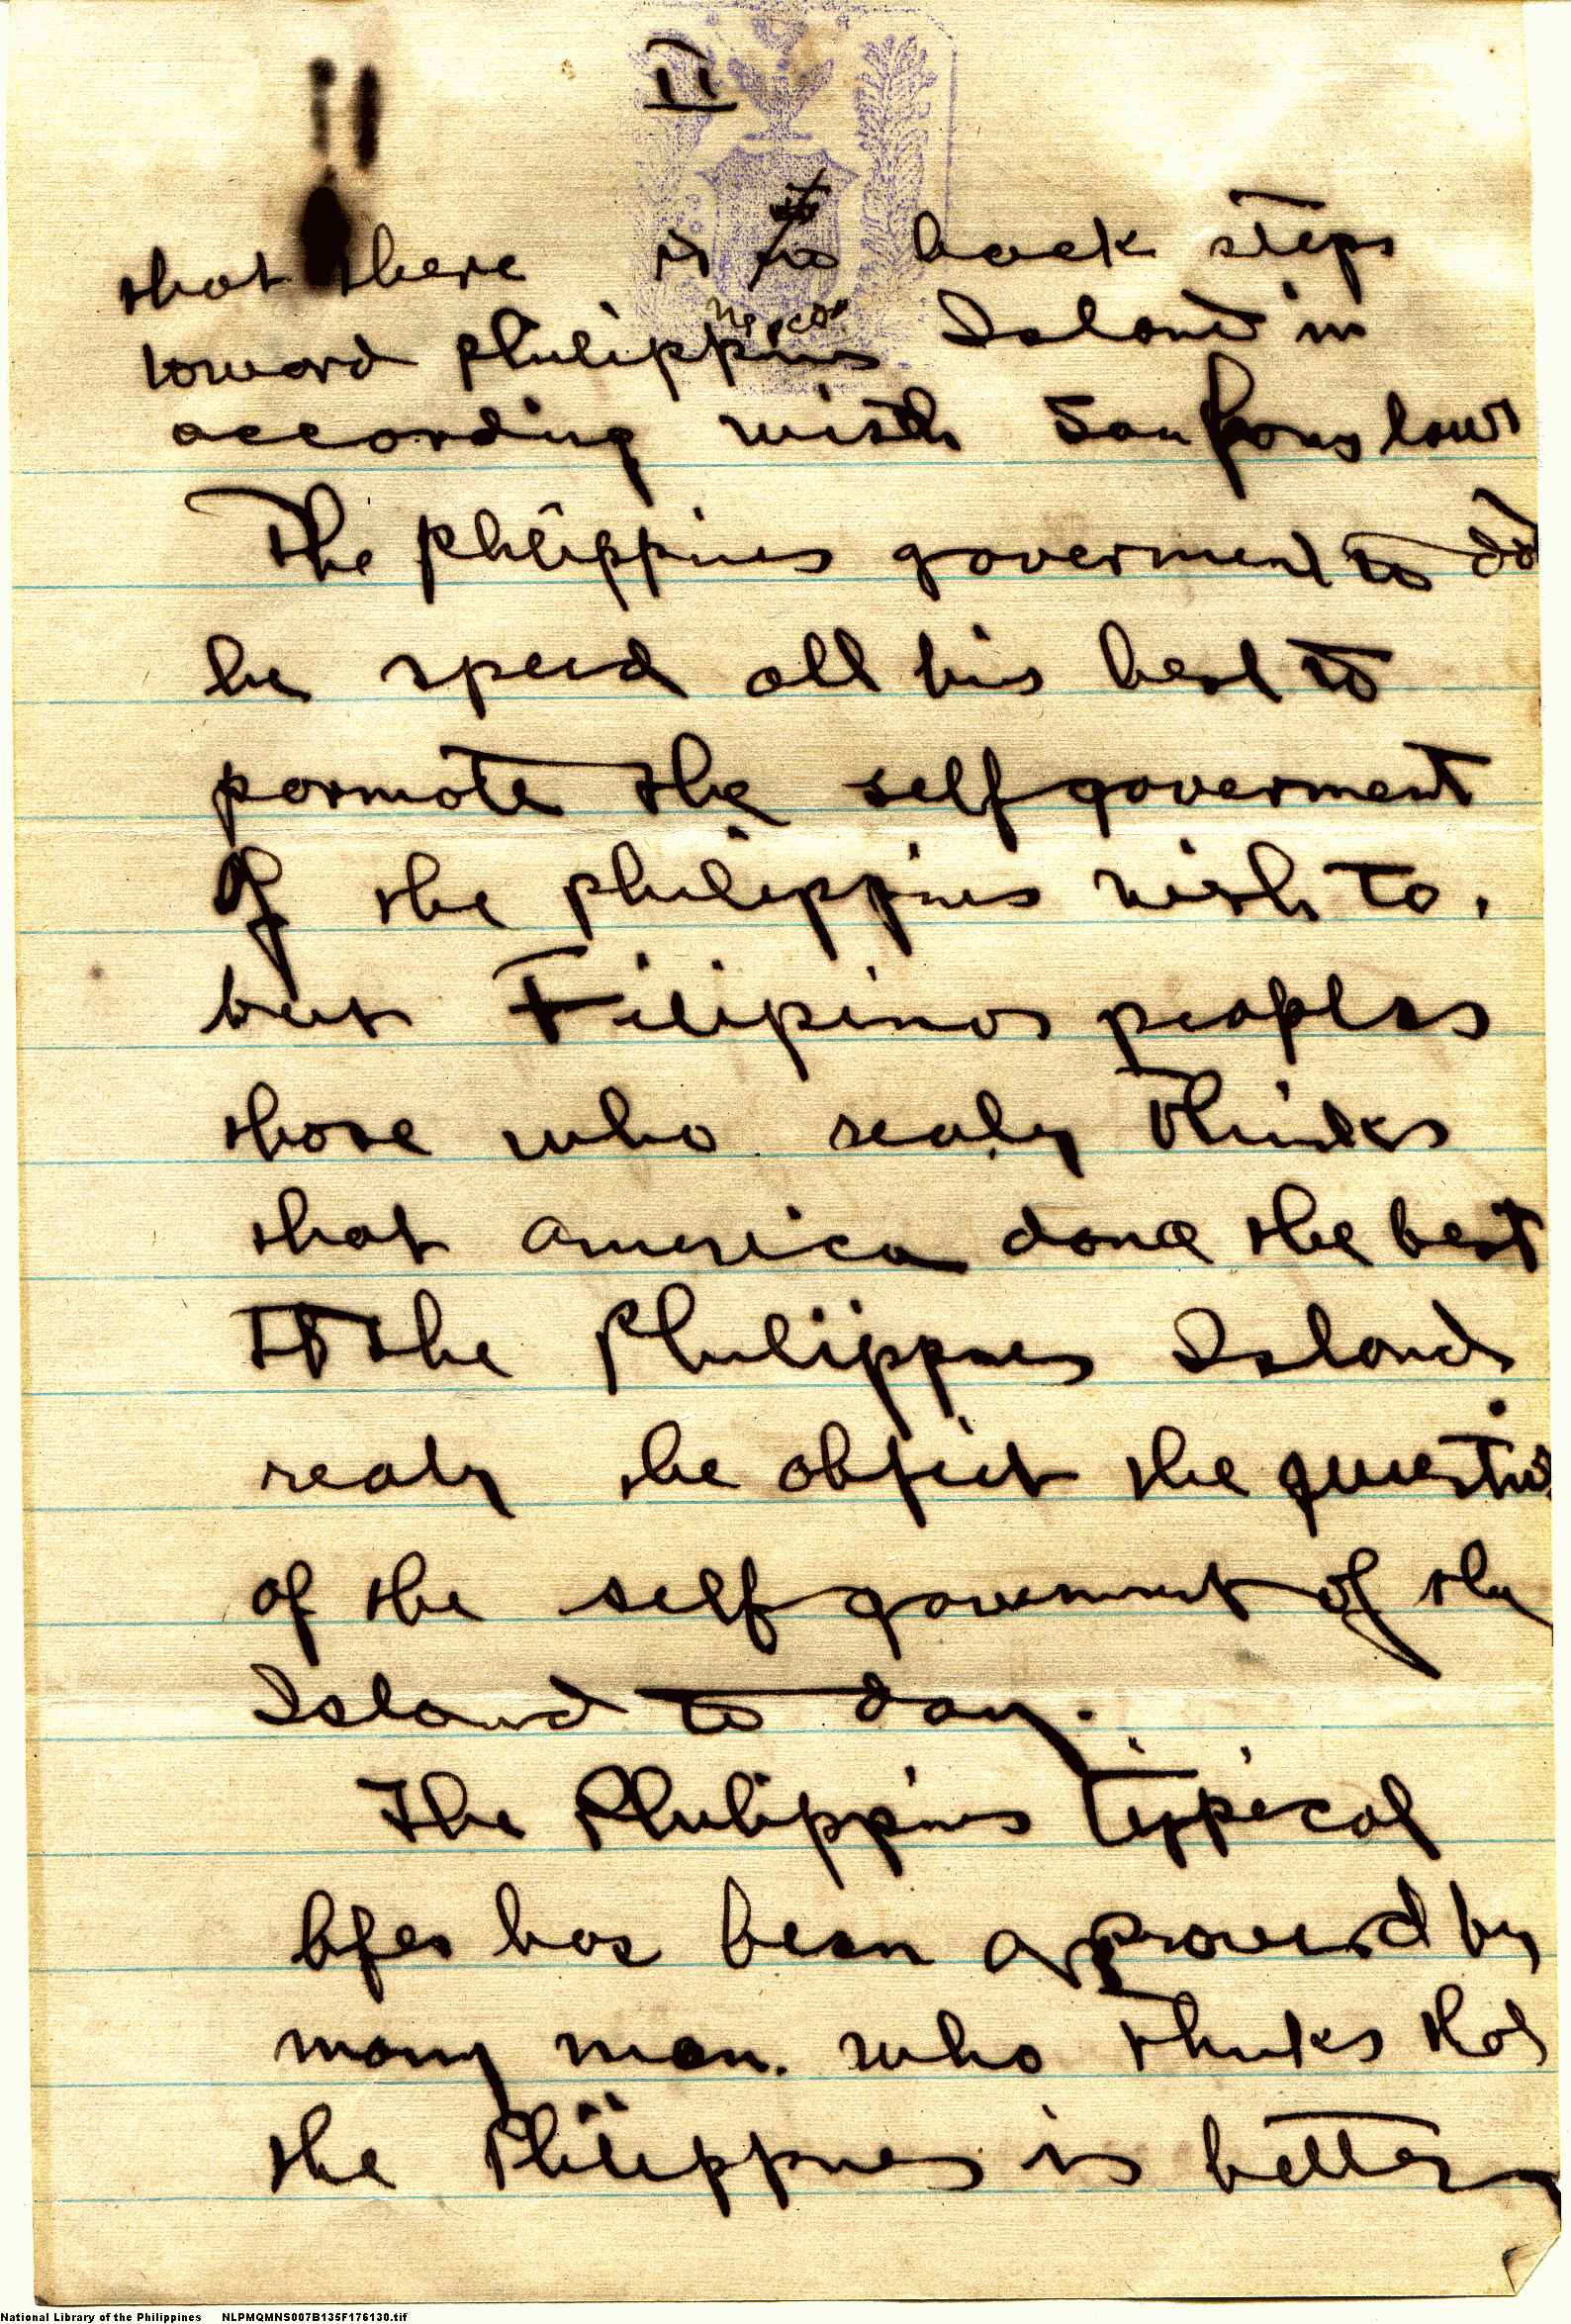 II
that there is no back steps
toward Philippines Island in
according with law
The Philippines goverment to do
he speed all his best to
pormote the self goverment
Of the philippines wish to.
but Filipinos peoples
those who realy Thinks
that america done the best
to the Philippines Islands
realy he object the question
of the self goverment of the
Island to day.
The Philippines tippical
lifes has been approved by
many man. who thinks that
the Philippines is better
National Library of the Philippines NLPMQMNS007B135F176130.tif